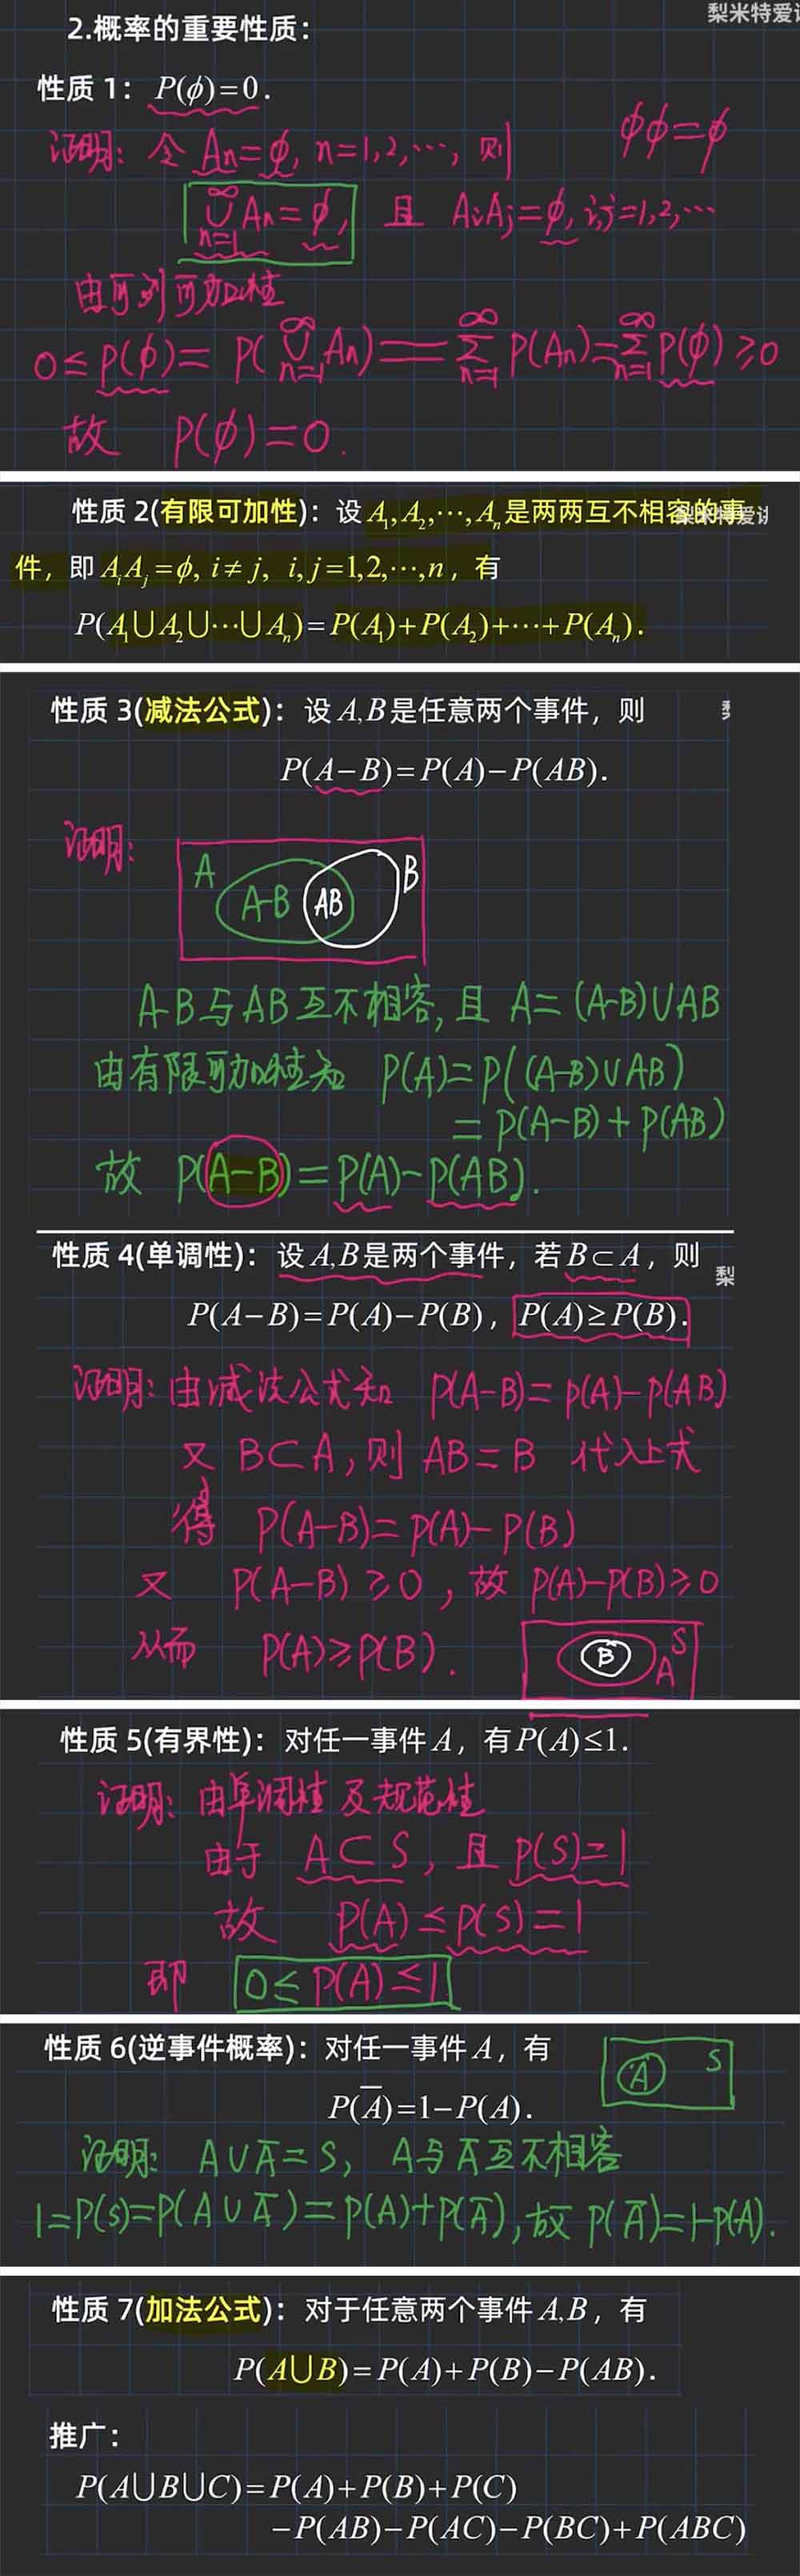 梨米特爱
2.概率的重要性质：
性质 1： P(ϕ)=0.
证明：令 An=ϕ, n=1,2,⋯, 则 ϕϕ=ϕ
⋃_{n=1}^{∞} An=ϕ, 且 AiAj=ϕ, i,j=1,2,⋯
由可列可加性
0≤P(ϕ)=P(⋃_{n=1}^{∞} An)=∑_{n=1}^{∞} P(An)=∑_{n=1}^{∞} P(ϕ)≥0
故 P(ϕ)=0.
性质 2(有限可加性)：设 A₁,A₂,⋯,Aₙ 是两两互不相容的事
件，即 AᵢAⱼ=ϕ, i≠j, i,j=1,2,⋯,n，有
P(A₁∪A₂∪⋯∪Aₙ)=P(A₁)+P(A₂)+⋯+P(Aₙ).
性质 3(减法公式)：设 A,B是任意两个事件，则
P(A−B)=P(A)−P(AB).
证明：
A A-B AB B
A-B与AB互不相容, 且 A=(A-B)∪AB
由有限可加性知 P(A)=P((A-B)∪AB)
=P(A-B)+P(AB)
故 P(A-B)=P(A)-P(AB).
性质 4(单调性)：设 A,B是两个事件，若 B⊂A，则
梨
P(A−B)=P(A)−P(B)，P(A)≥P(B).
证明：由减法公式知 P(A-B)=P(A)-P(AB)
又 B⊂A, 则 AB=B 代入上式
得 P(A-B)=P(A)-P(B)
又 P(A-B)≥0, 故 P(A)-P(B)≥0
从而 P(A)≥P(B). B A S
性质 5(有界性)：对任一事件 A，有 P(A)≤1.
证明：由单调性及规范性
由于 A⊂S, 且 P(S)=1
故 P(A)≤P(S)=1
即 0≤P(A)≤1
性质 6(逆事件概率)：对任一事件 A，有 A S
P(A̅)=1−P(A).
证明：A∪A̅=S, A与A̅互不相容
1=P(S)=P(A∪A̅)=P(A)+P(A̅), 故 P(A̅)=1-P(A).
性质 7(加法公式)：对于任意两个事件 A,B，有
P(A∪B)=P(A)+P(B)−P(AB).
推广：
P(A∪B∪C)=P(A)+P(B)+P(C)
−P(AB)−P(AC)−P(BC)+P(ABC)